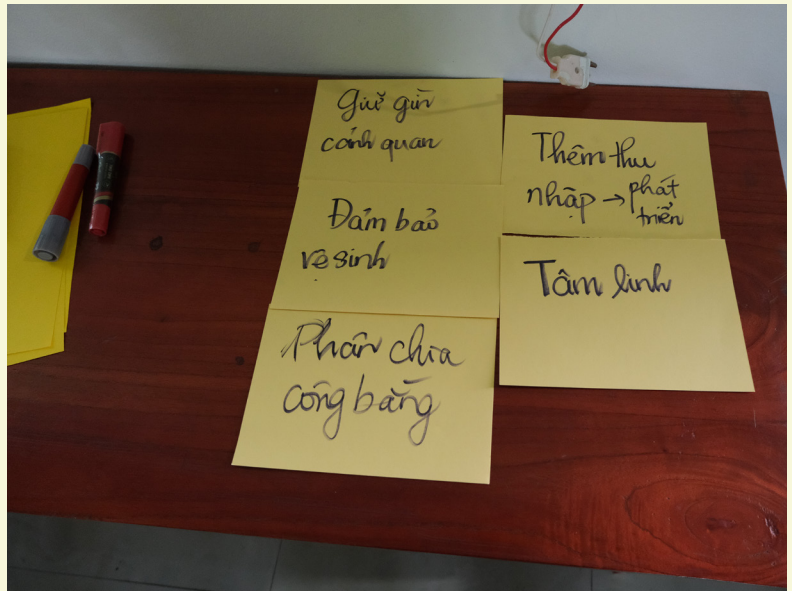 Giữ gìn
cảnh quan
Đảm bảo
vệ sinh
Phân chia
công bằng
Thêm thu
nhập → phát
triển
Tâm linh